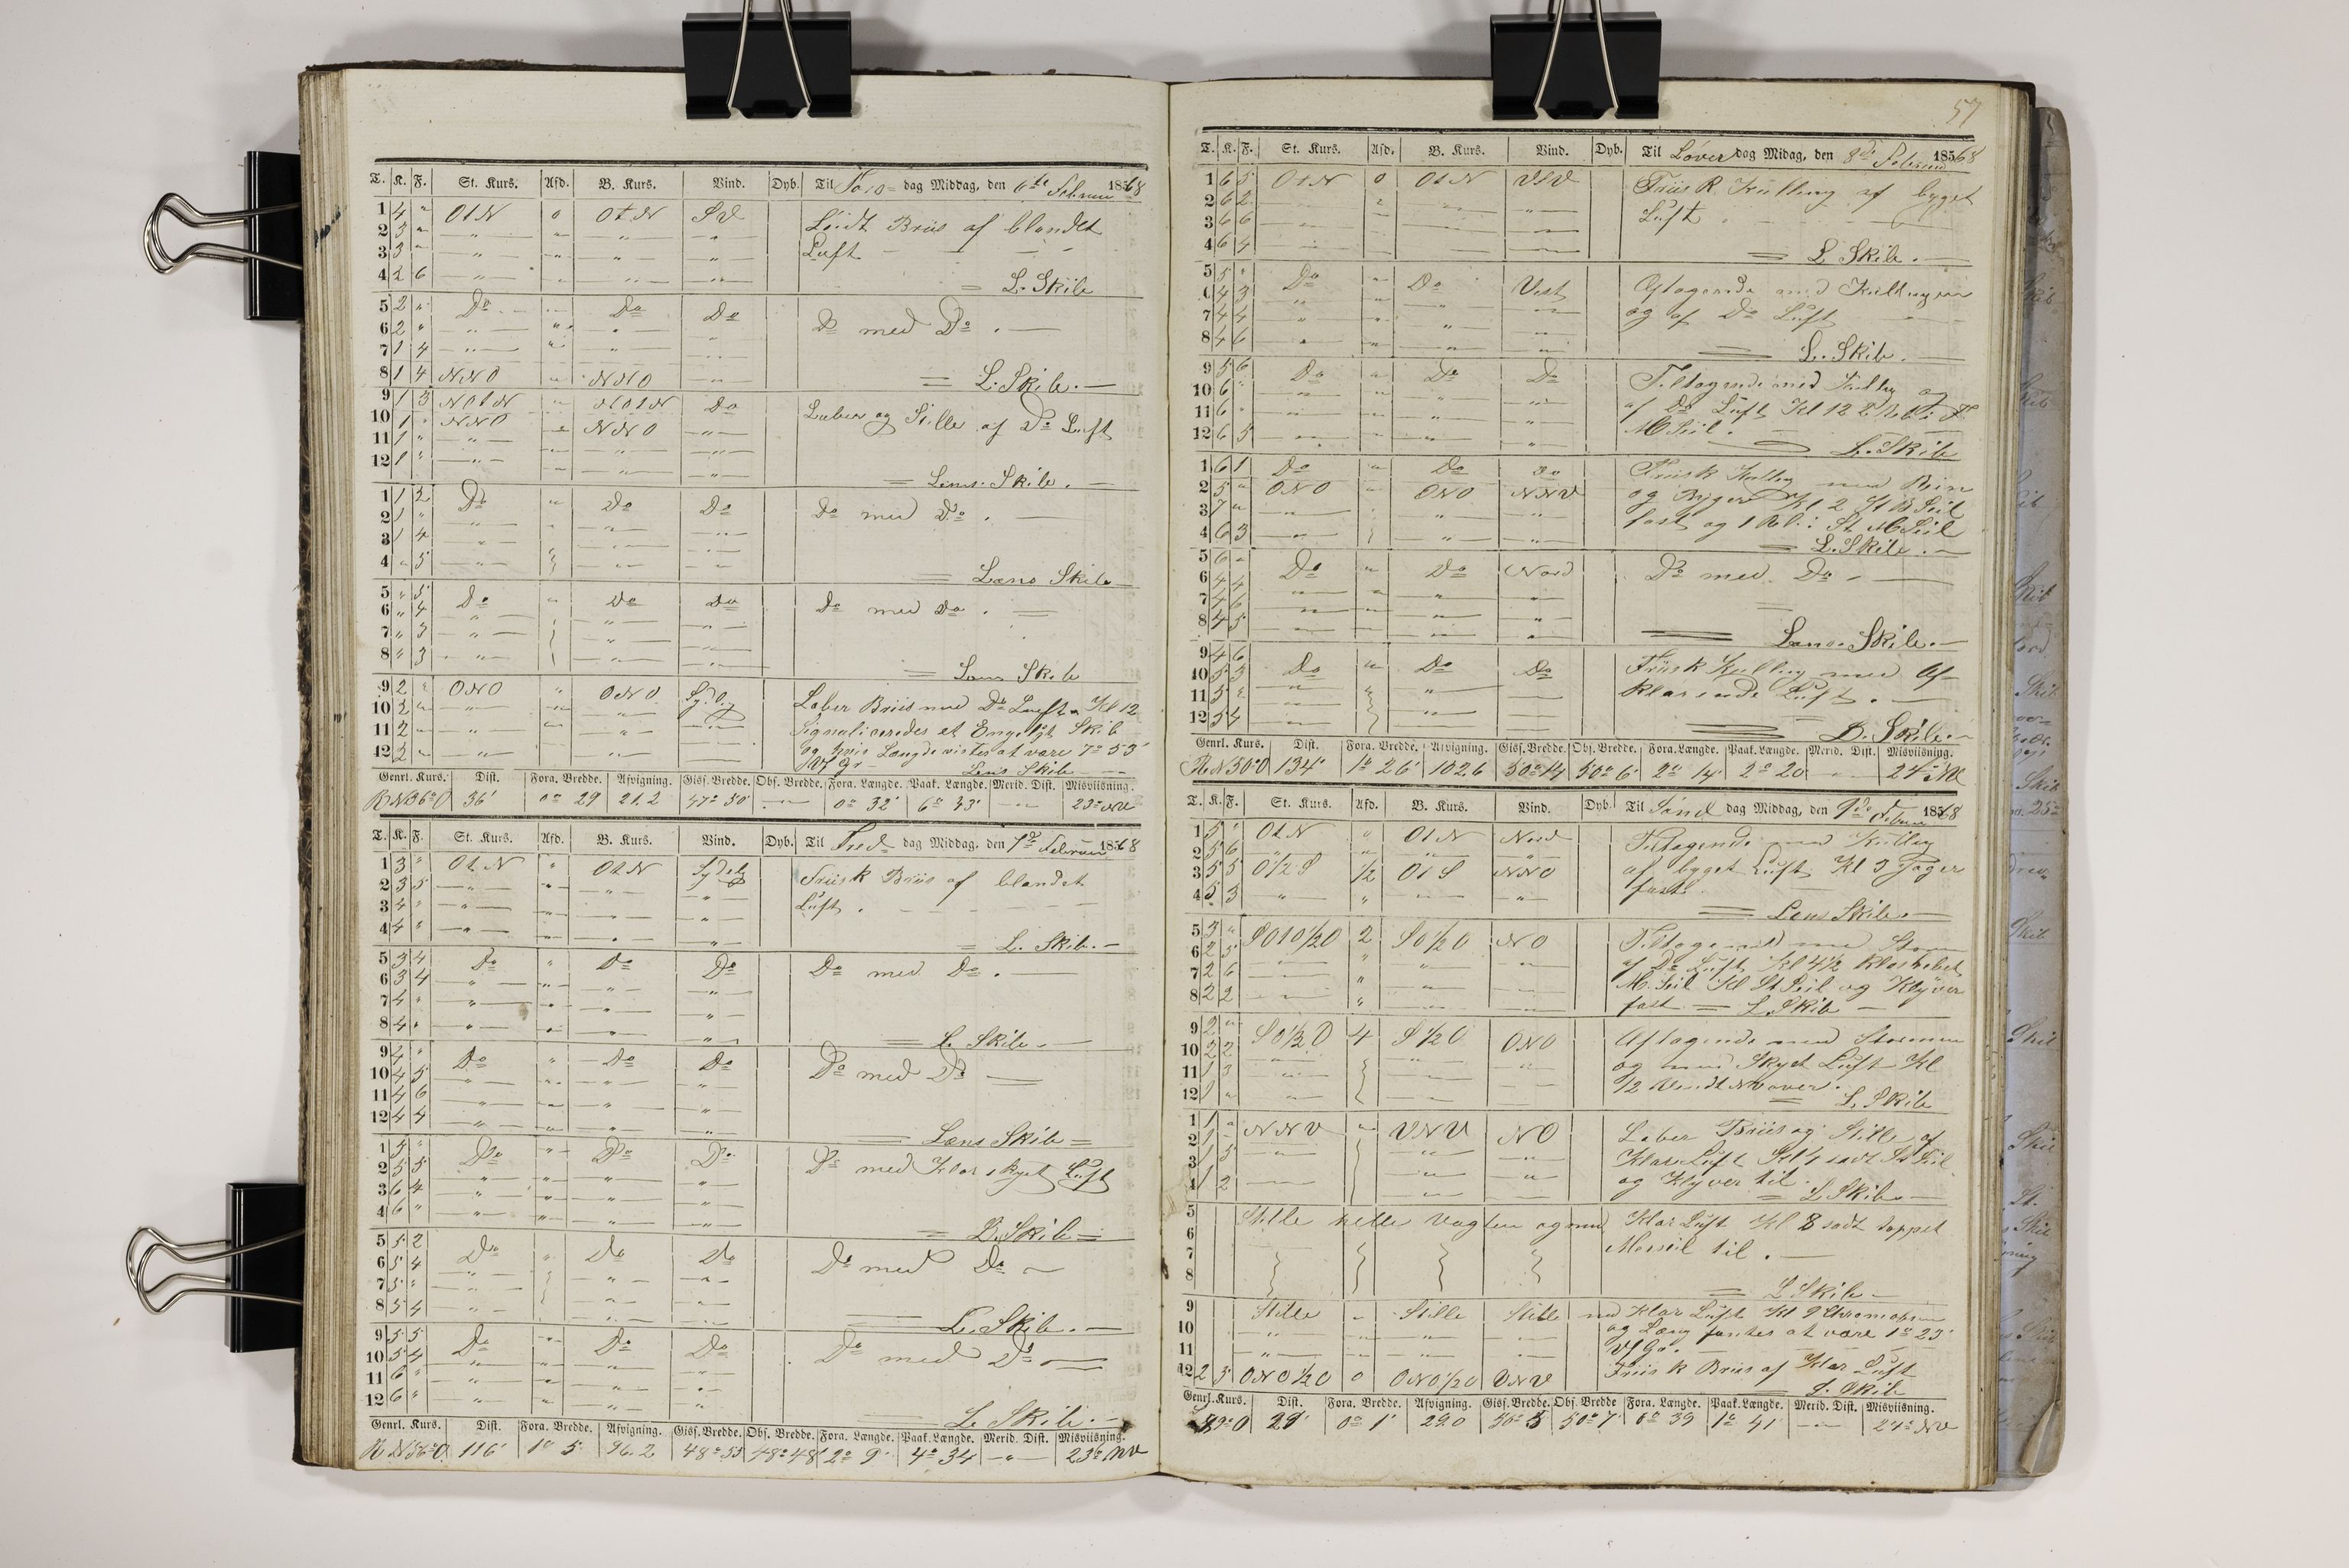 T. K. F. St. Kurs. Afd. B. Kurs. Vind. Dyb. Til Tors dag Middag, den 6te Februar 1868
1 4 " OtN 0 OtN SV Leidt Briis af blandet
2 3 "
3 3 " Luft
4 2 6 = L. Skib
5 2 " Do Do Do Do med Do . —
6 2 "
7 1 4
8 1 4 NNO NNO = L. Skib. —
9 1 3 NOtN NOtN Do Laber og Stille af Do Luft
10 1 " NNO NNO
11 1 "
12 1 " = Lens. Skib. —
1 1 2 Do Do Do Do med Do . —
2 1 "
3 1 4
4 " 5 = Læns Skib
5 " 5 Do Do Do Do med Do . =
6 " 4
7 " 3
8 " 3 = Læns Skib
9 2 " ONO ONO Laber Briis med Do Luft Kl 12
10 2 " Signaliseredes et Engelsk Skib
11 2 " og hvis Længde vistes at være 7° 53'
12 2 " Vf Gr — Lens Skib
Genrl. Kurs. Dist. Fora. Bredde. Afvigning. Giss. Bredde. Obs. Bredde. Fora. Længde. Paak. Længde. Merid. Dist. Misviisning.
R N36°O 36' 0° 29 21.2 47° 50' — 0° 32' 6° 43' — 23° NV
T. K. F. St. Kurs. Afd. B. Kurs. Vind. Dyb. Til Fred dag Middag, den 7de Februar 1868
1 3 " OtN " OtN Sydely Friisk Briis af blandet
2 3 5
3 4 " Luft .
4 4 " = L. Skib. —
5 3 4 Do " Do Do Do med Do . —
6 3 4
7 4 "
8 4 " = L. Skib. —
9 4 " Do " Do Do Do med Do —
10 4 5
11 4 6
12 4 4 = Læns Skib =
1 5 " Do Do Do Do med Klar skyet Luft
2 5 5
3 6 4
4 6 " = B. Skib =
5 5 2 Do " Do Do Do med Do —
6 5 4
7 5 "
8 5 4 L. Skib. —
9 5 5 Do Do Do Do med Do —
10 5 4
11 6 "
12 6 " L. Skib. —
Genrl. Kurs. Dist. Fora. Bredde. Afvigning. Giss. Bredde. Obs. Bredde. Fora. Længde. Paak. Længde. Merid. Dist. Misviisning.
R N56°O 116' 1° 5' 96.2 48° 55 48° 48' 2° 9' 4° 34 — 23° NV
57
T. K. F. St. Kurs. Afd. B. Kurs. Vind. Dyb. Til Løver dag Midag, den 8de Februar 1868
1 6 5 OtN 0 OtN VSV Friisk Kulling af byget
2 6 2 Luft
3 6 6
4 6 4 = L Skib. —
5 5 " Do Do Vest Aftagende med Kullingen
6 4 3 og af Do Luft
7 4 4
8 4 6 = L. Skib. —
9 5 6 Do " Do Do Tiltagende med Kulling og
10 6 " af Do Luft Kl 12 2 Reb i
11 6 " M Seil.
12 6 5 L. Skib
1 6 1 Do " Do Do Friisk Kulling med Rein
2 5 " ONO " ONO NNV og Byger Kl 2 Seil
3 7 " fast og 1 Reb i St M Seil
4 6 3 = L. Skib. —
5 6 " Do " Do Nord Do med Do —
6 4 4
7 4 6
8 4 5 Læns. Skib. —
9 4 6 Do " Do Do Friisk Kulling med Af-
10 5 3 klarende Luft . —
11 5 "
12 5 4 B. Skib. —
Genrl. Kurs. Dist. Fora. Bredde. Afvigning. Giss. Bredde. Obs. Bredde. Fora. Længde. Paak. Længde. Merid. Dist. Misviisning.
R N50°O 134' 1° 26' 102.6 50° 14 50° 6' 2° 14' 2° 20 — 24°
T. K. F. St. Kurs. Afd. B. Kurs. Vind. Dyb. Til Sønd dag Middag, den 9de Februar 1868
1 5 " OtN " OtN Nord Tiltagende med Kulling
2 5 6 af byget Luft Kl 3 Jager
3 5 5 O1/2S 1/2 OtS NNO fast
4 5 3 = Lens Skib. —
5 3 " SOtO1/2O 2 SO1/2O NO Tiltagende med Storm
6 2 5 af Do Luft Kl 4½ Klosrebet
7 2 6 M. Seil Kl St Seil og Klyver
8 2 2 fast = L. Skib —
9 2 " SO1/2O 4 S1/2O ONO Aftagende med Stormen
10 2 2 og med Skyet Luft Kl
11 1 3 1/2 Vendt over.
12 1 " = L. Skib
1 1 " NNV VNV NO Laber Briis og Stille af
2 1 " Klar Luft Kl 4 sadt St Seil
3 1 5 og Klyver til.
4 1 2 = L Skib —
5 Stille hele Vagten og med Klar Luft Kl 8 sadt doppet
6 Merseil til . —
7
8 = L Skib —
9 Stille " Stille Stille med Klar Luft Kl 9 Chronom obser
10 og Læng fantes at være 1° 25'
11 Vf Gr.
12 2 3 ONO1/2O 0 ONO1/2O VNV Friisk Briis af Klar Luft
L. Skib
Genrl. Kurs. Dist. Fora. Bredde. Afvigning. Giss. Bredde. Obs. Bredde Fora. Længde. Paak. Længde. Merid. Dist. Misviisning.
S89°O 29' 0° 1' 29.0 50° 5 50° 7' 0° 39 1° 41 — 24° NV